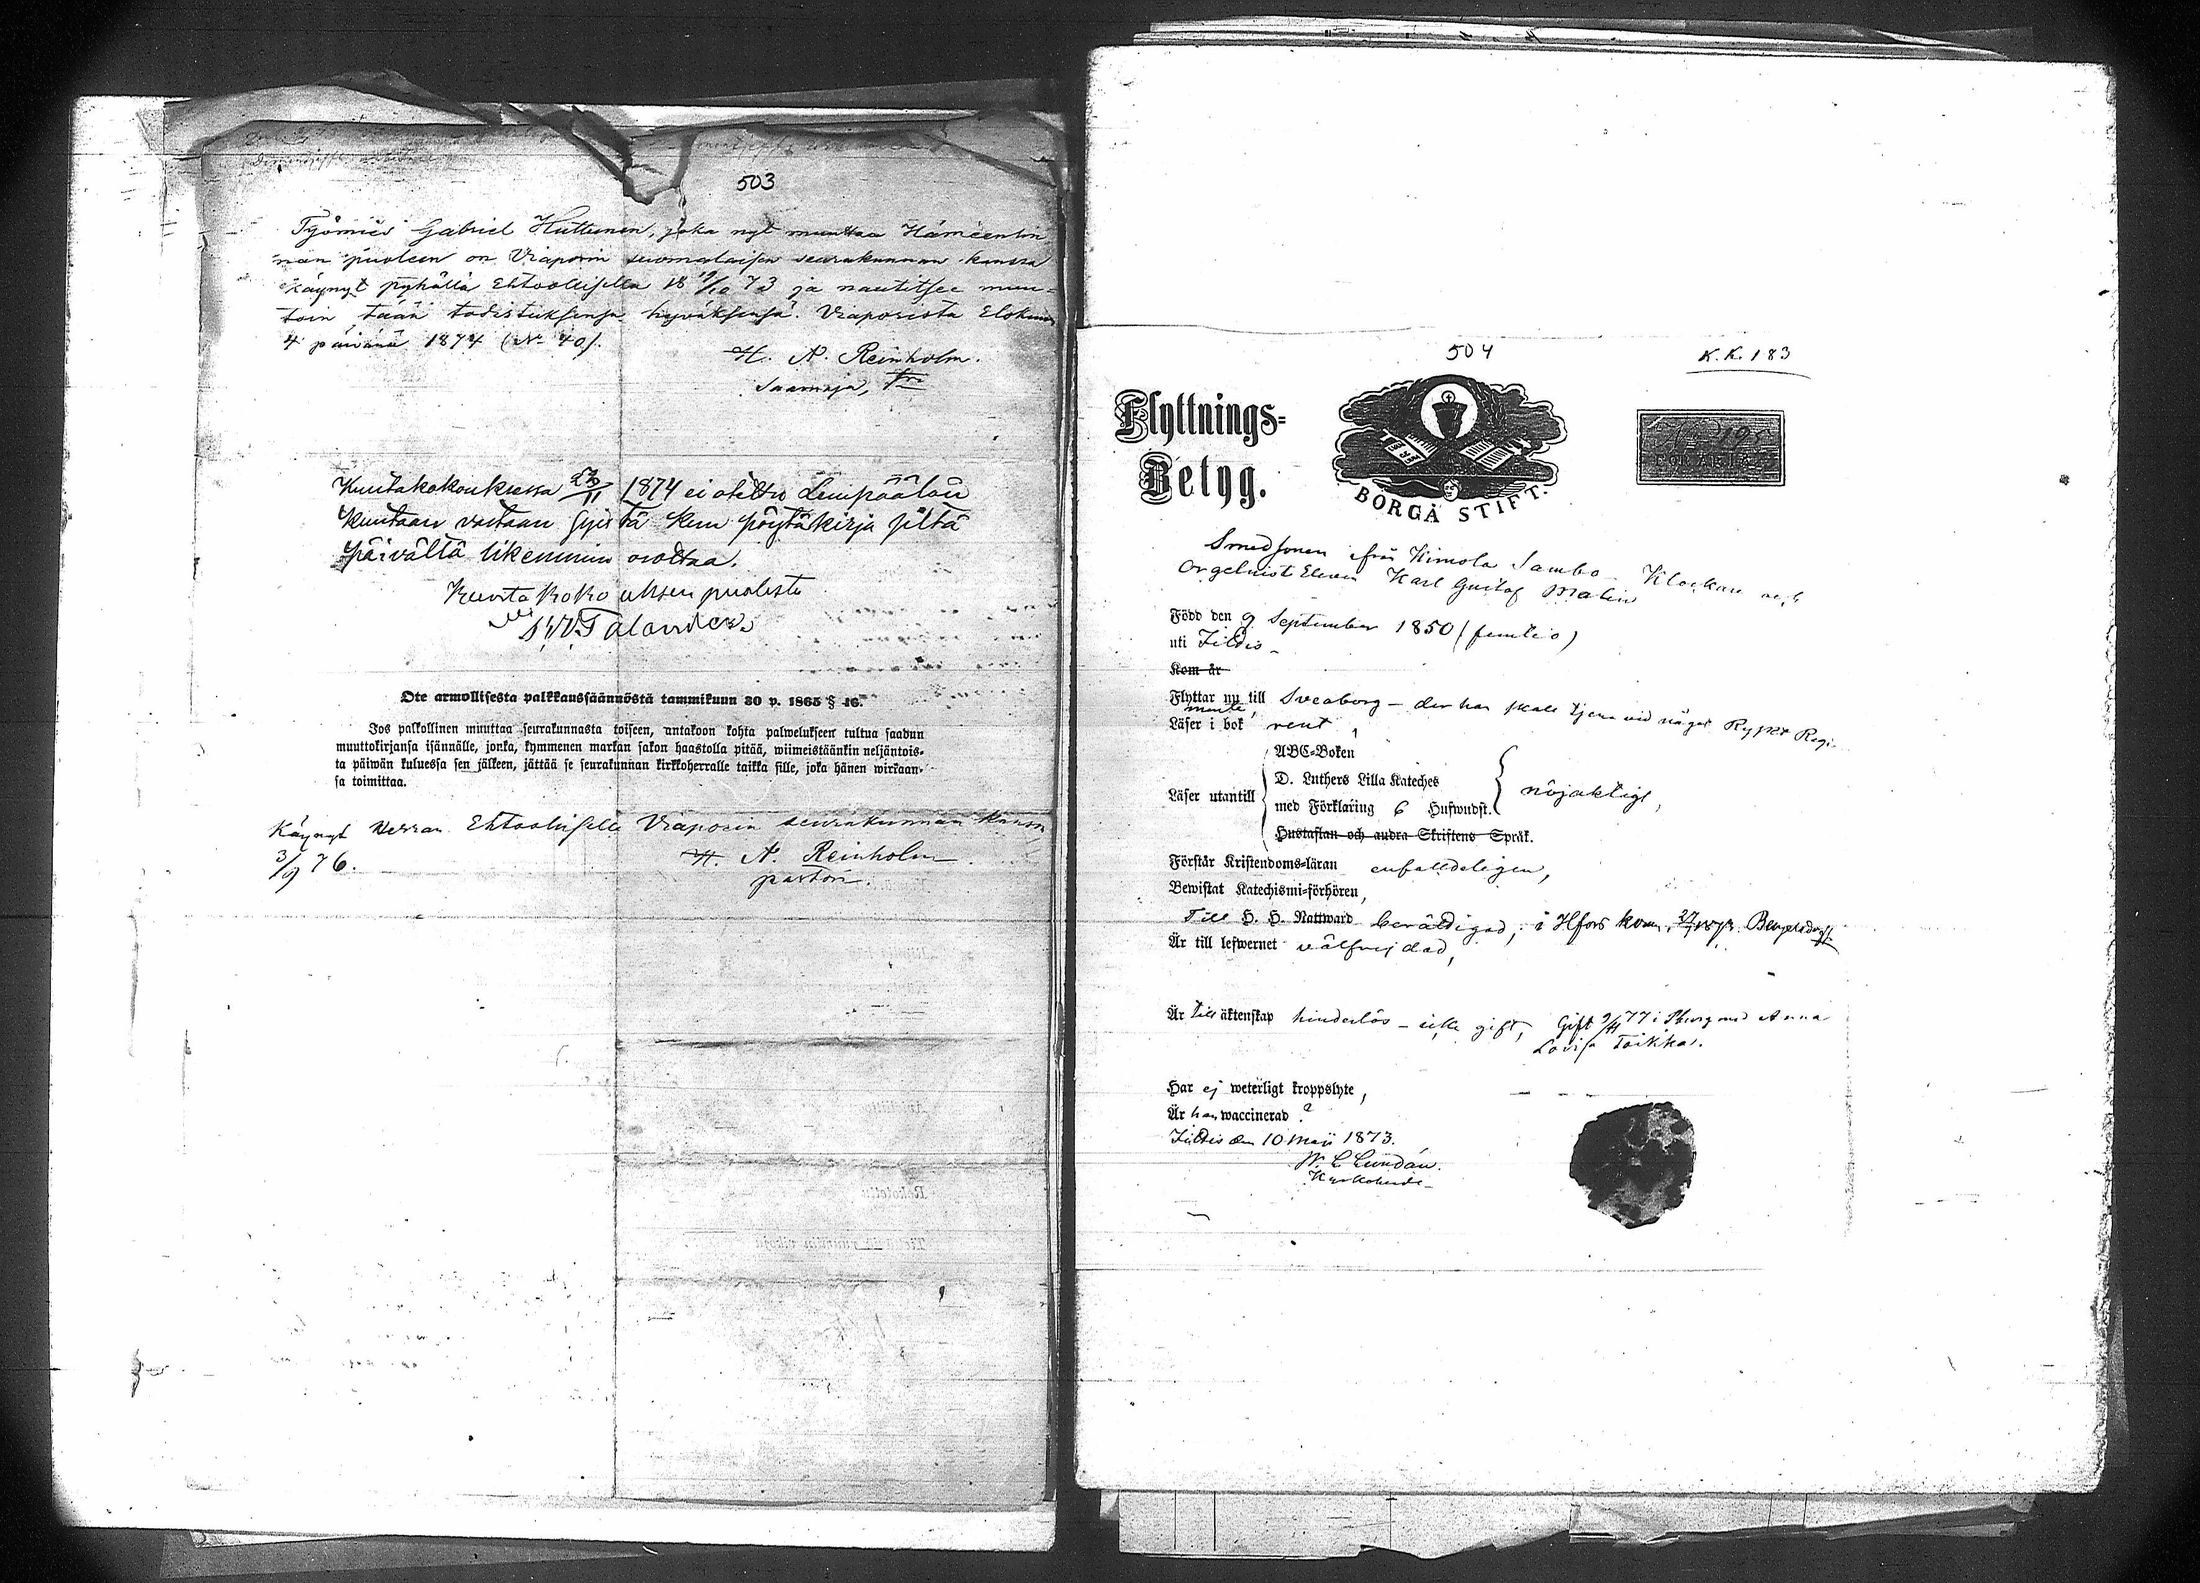 503
Työmies Gabriel Huttunen, joka nyt muuttaa Hämeenlin
nan puoleen on Viaporin suomalaisen seurakunnan kanssa
käynyt pyhällä Ehtoollisella 18 19/10 73 ja nautitsee muu=
toin tään todistuksensa hyväksensä. Viaporista Elokuun
4 päivänä 1874 (No 40).
H. A. Reinholm.
Saarnaja,
Kuntakokouksessa 23/11 1874 ei otettu Lempäälän
kuntaan vastaan syistä kun pöytäkirja siltä
päivältä likemmin osottaa.
Kuntakokouksen puolesta
Talander
Ote armollisesta palkkaussäännöstä tammikuun 30 p. 1865 § 16.
Jos palkollinen muuttaa seurakunnasta toiseen, antakoon kohta palwelukseen tultua saadun
muuttokirjansa isännälle, jonka, kymmenen markan sakon haastolla pitää, wiimeistäänkin neljäntois-
ta päiwän kuluessa sen jälkeen, jättää se seurakunnan kirkkoherralle taikka sille, joka hänen wirkaan-
sa toimittaa.
Käynyt Herran Ehtoollisella Viaporin seurakunnan kanssa
3/9 76.
H. A. Reinholm.
pastori.
504
K.K. 183
Flyttnings-
Betyg.
BORGÅ STIFT.
Smedsonen ifrån Kimola Sambo Klockare och
Orgelnist Eleven Karl Gustaf Malin
Född den 9 September 1850 (femtio)
uti Jittis
Kom år
Flyttar nu till Sveaborg – der han skall tjena vid något Ryskt Regi-
mente,
Läser i bok rent,
ABC-Boken
D. Luthers Lilla Kateches
Läser utantill
med Förklaring 6 Hufwudst.
nöjaktigt,
Hustaflan och andra Skriftens Språk.
Förstår Kristendoms-läran enfalldeligen,
Bewistat Katechismi-förhören,
Till H. H. Nattward berättigad, i Hfors kom.
Är till lefwernet välfrejdad,
Är till äktenskap hinderlös – icke gift, Gift 9/11 77 i med Anna
Lovisa Toikka.
Har ej weterligt kroppslyte,
Är han waccinerad ?
Jittis den 10 Maji 1873.
W. C. Lundán.
Kyrkoherde